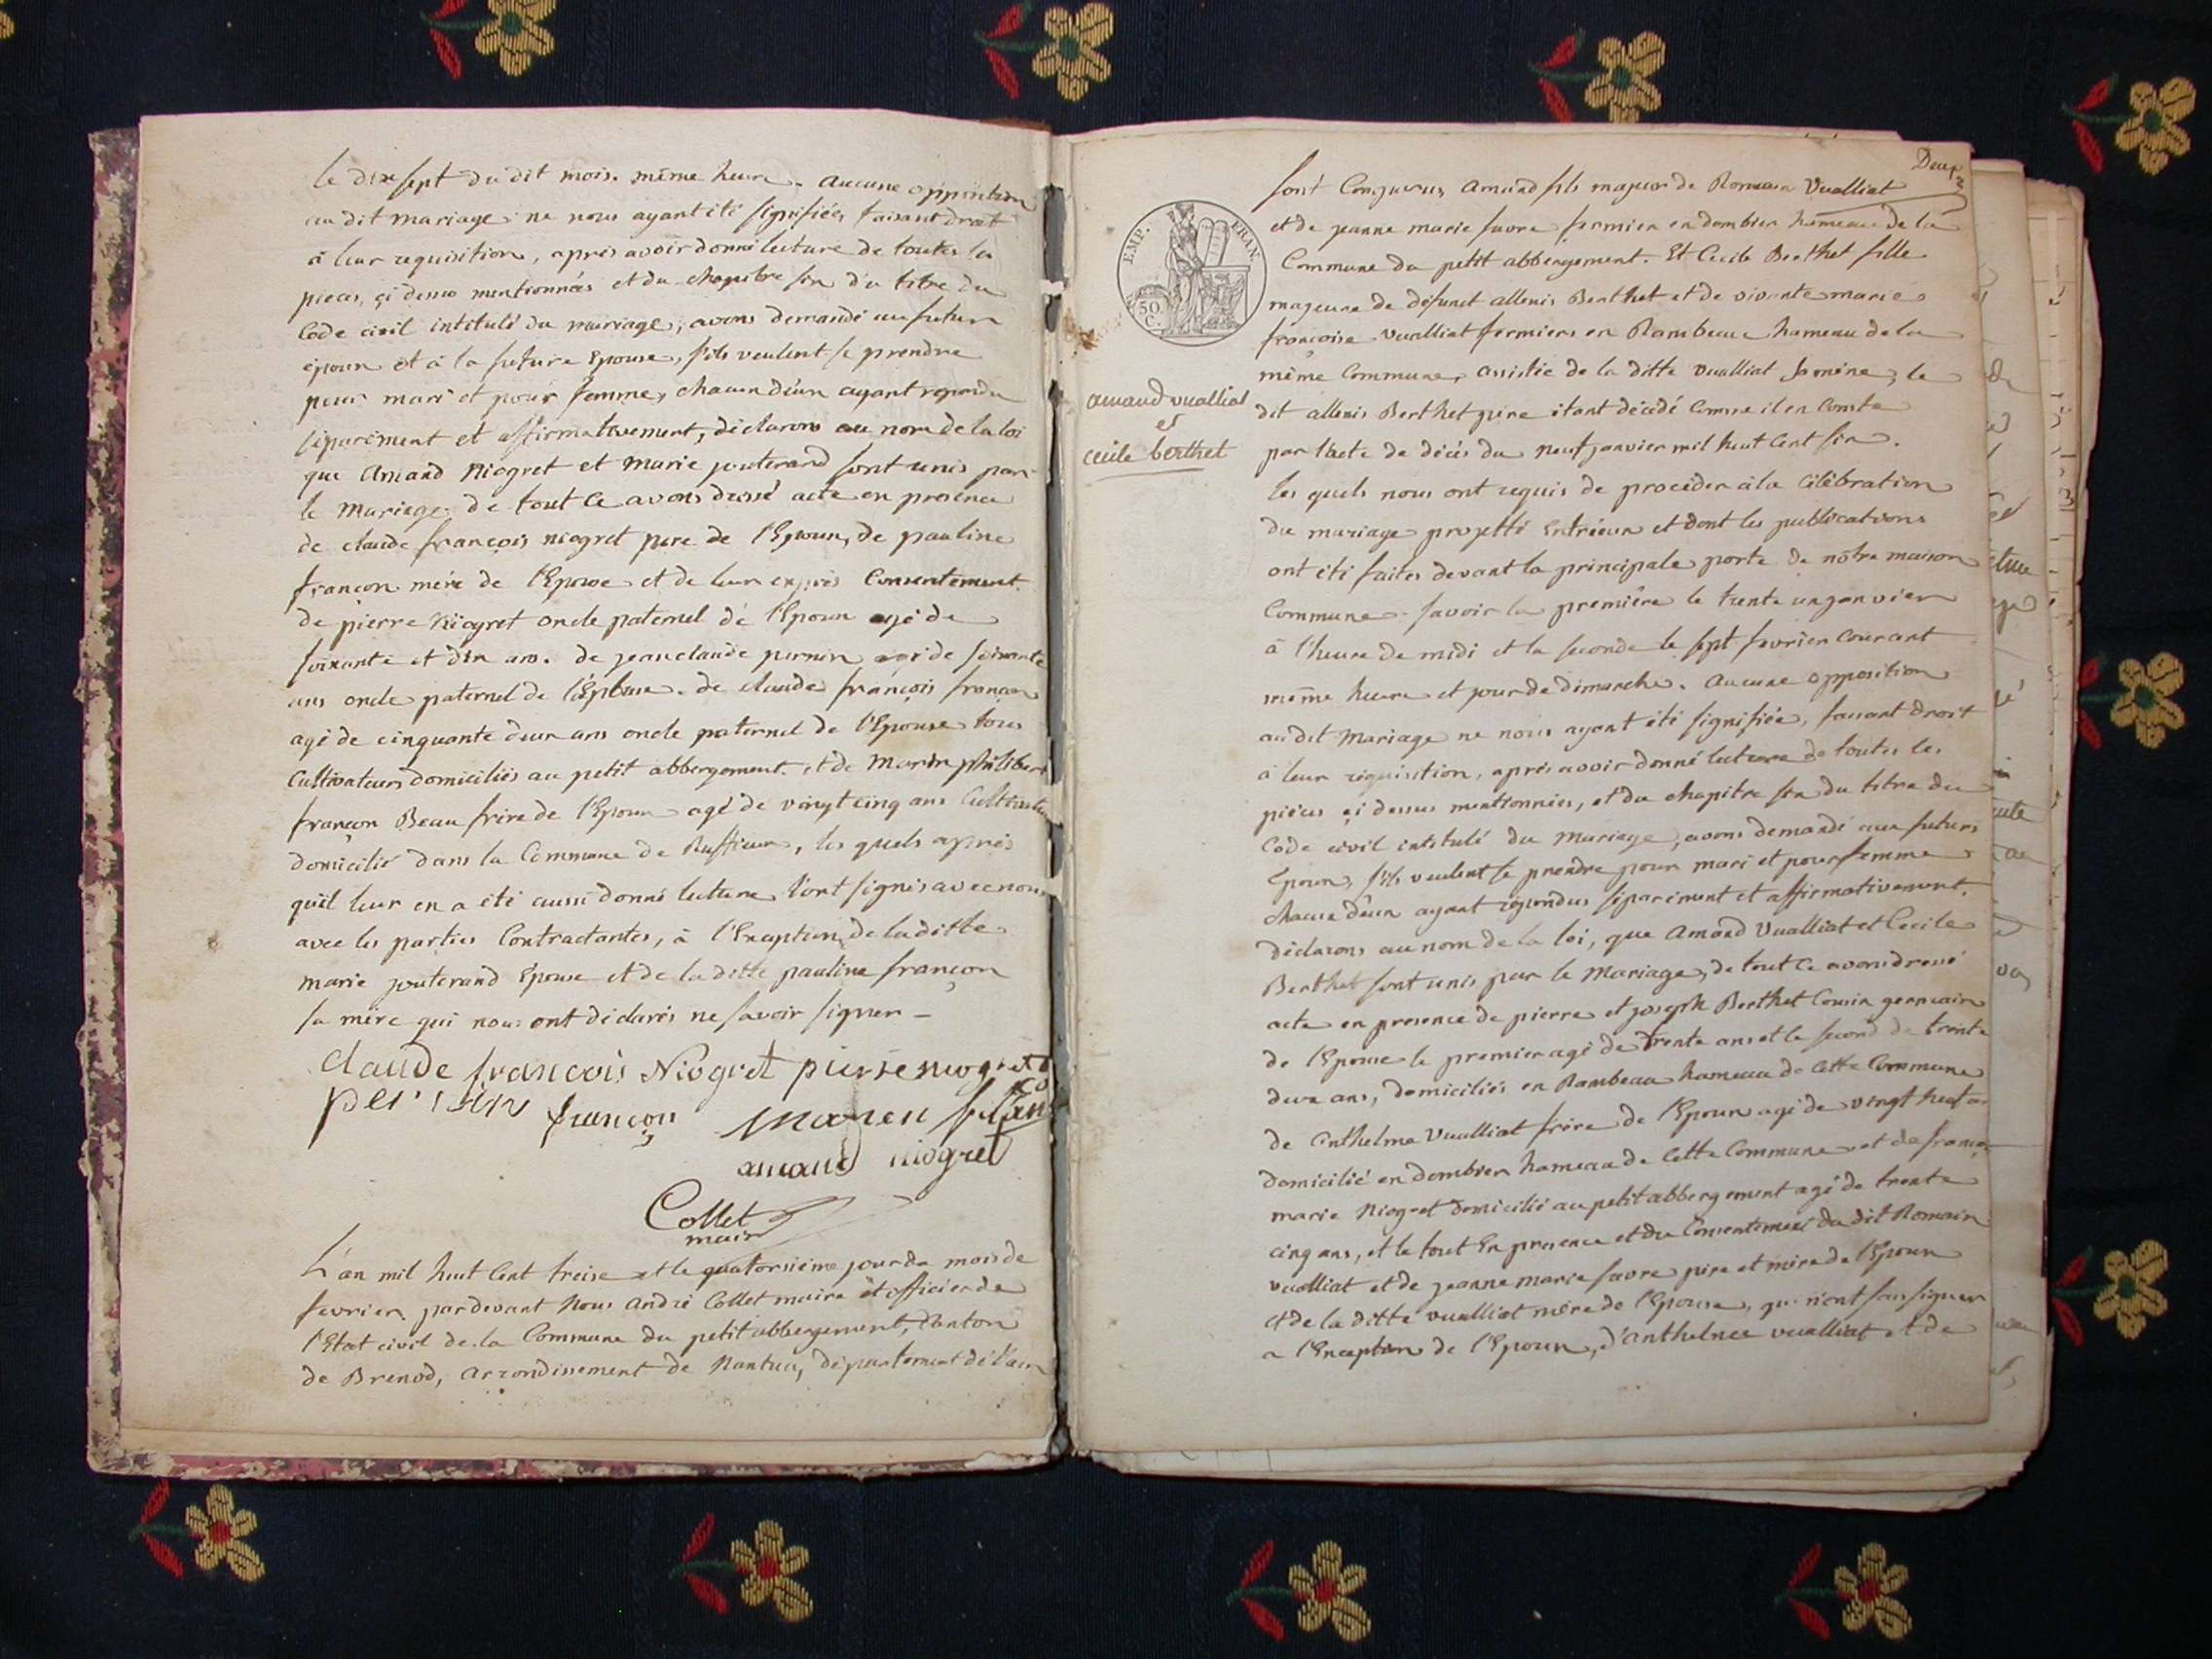 le dixsept du dit mois. même heure. aucune opposition
au dit mariage ne nous ayant été signifiée, faisant droit
à leur requisition, après avoir donné lecture de toutes les
pieces, çi dessus mentionnées et du chapitre six du titre du
Code civil intitulé du mariage, avons demandé au futur
époux et à la future Epouse, s'ils veulent se prendre
pour mari et pour femme, chacun d'eux ayant repondu
séparément et affirmativement, déclarons au nom de la loi
que Amand Niogret et Marie jouterand sont unis par
le Mariage. de tout ce avons dressé acte en presence
de claude françois niogret pere de l'Epoux, de pauline
françon mére de l'Epouse et de leur exprès Consentement.
de pierre Niogret oncle paternel de l'Epoux agé de
soixante et dix ans. de jean claude pernin agé de soixante
ans oncle paternel de l'Epouse. de claude françois françon
agé de cinquante deux ans oncle paternel de l'Epouse tous
Cultivateurs domiciliés au petit abbergement. et de Marin philibert
françon Beau frère de l'Epoux agé de vingt cinq ans Cultivateur
domicilié dans la Commune de Ruffieux, les quels après
qu'il leur en a été aussi donné lecture l'ont signés avec nous
avec les parties Contractantes, à l'Exception de la ditte
marie jouterand Epouse et de la ditte pauline françon
sa mére qui nous ont déclarés ne savoir signer —
claude françois Niogret pierre niogret
françon marin
amand niogret
Collet
maire
L'an mil huit Cent treise et le quatorsiéme jour du mois de
fevrier pardevant Nous André Collet maire et officier de
l'Etat civil de la Commune du petit abbergement, Canton
de Brenod, arrondissement de Nantua, département de l'ain
Deux
EMP. FRAN.
50 C.
amand vualliat
et
cécile berthet
sont Comparus Amand fils majeur de Romain Vualliat
et de jeanne marie favre fermier en dombier hameau de la
Commune du petit abbergement. Et Cecile Berthet fille
majeure de défunct allexis Berthet et de vivante marie
françoise vualliat fermiers en Rambeau hameau de la
même Commune, assistée de la ditte vualliat sa mère, le
dit allexis Berthet pére étant décédé Comme il en Conste
par l'acte de décés du neuf janvier mil huit Cent six.
les quels nous ont requis de procéder à la Célébration
du mariage projetté Entr'eux et dont les publications
ont été faites devant la principale porte de nôtre maison
Commune. savoir la première le trente un janvier
à l'heure de midi et la seconde le sept fevrier Courant
même heure et jour de dimanche. Aucune opposition
au dit Mariage ne nous ayant été signifiée, faisant droit
à leur réquisition, après avoir donné lecture de toutes les
piéces çi dessus mentionnées, et du chapitre six du titre du
Code civil intitulé du Mariage, avons demandé aux futurs
Epoux, s'ils veulent se prendre pour mari et pour femme
chacun d'eux ayant répondus séparément et affirmativement.
déclarons au nom de la loi, que Amand Vualliat et Cecile
Berthet sont unis par le Mariage, de tout ce avons dressé
acte en presence de pierre et joseph Berthet Cousin germain
de l'Epouse le premier agé de trente ans et le second de trente
deux ans, domiciliés en Rambeau hameau de Cette Commune
de Anthelme Vualliat frère de l'Epoux agé de vingt huit ans
domicilié en dombier hameau de Cette Commune et de françois
marie Niogret domicilié au petit abbergement agé de trente
cinq ans, et le tout En presence et du Consentement du dit Romain
vualliat et de jeanne marie favre pére et mére de l'Epoux
et de la ditte vualliat mére de l'Epouse, qui n'ont sçu signer
a l'Exception de l'Epoux, d'anthelme vualliat et de